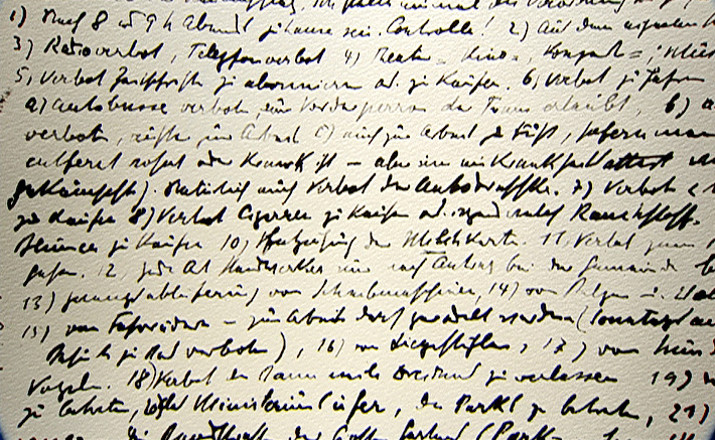 1) Nach 8 od 9 h Abends zuhause sein. Controlle! 2) Aus dem eigenen
3) Radioverbot, Telephonverbot 4) Theater=, Kino=, Konzert=,
5, Verbot Zeitschriften zu abonnieren od. zu kaufen. 6, Verbot zu fahren
a) Autobusse verboten, nur Vorderperron der Tram erlaubt, b)
verboten, ausser zur Arbeit c) auch zur Arbeit zu Fuß, sofern man
entfernt wohnt oder krank ist – aber um ein Krankheitsattest
gekämpft). Natürlich auch Verbot der Autodroschke. 7) Verbot
zu kaufen 8) Verbot Cigarren zu kaufen od. irgendwelche Rauchstoffe.
Blumen zu kaufen 10) Entziehung der Milchkarte. 11, Verbot zum
gehen. 12, jede Art Handwerker nur nach Antrag bei der Gemeinde
13) Zwangsablieferung von Schreibmaschinen, 14) von Pelzen u.
15) von Fahrrädern – zur Arbeit darf geradelt werden (Sonntags
Besuch zu Rad verboten), 16) von Liegestühlen, 17) von
Vögeln. 18) Verbot die Bannmeile Dresdens zu verlassen 19)
zu betreten, das Ministeriumsufer, die Parks zu betreten, 21)
die Randstraßen des Großen Gartens (Park=